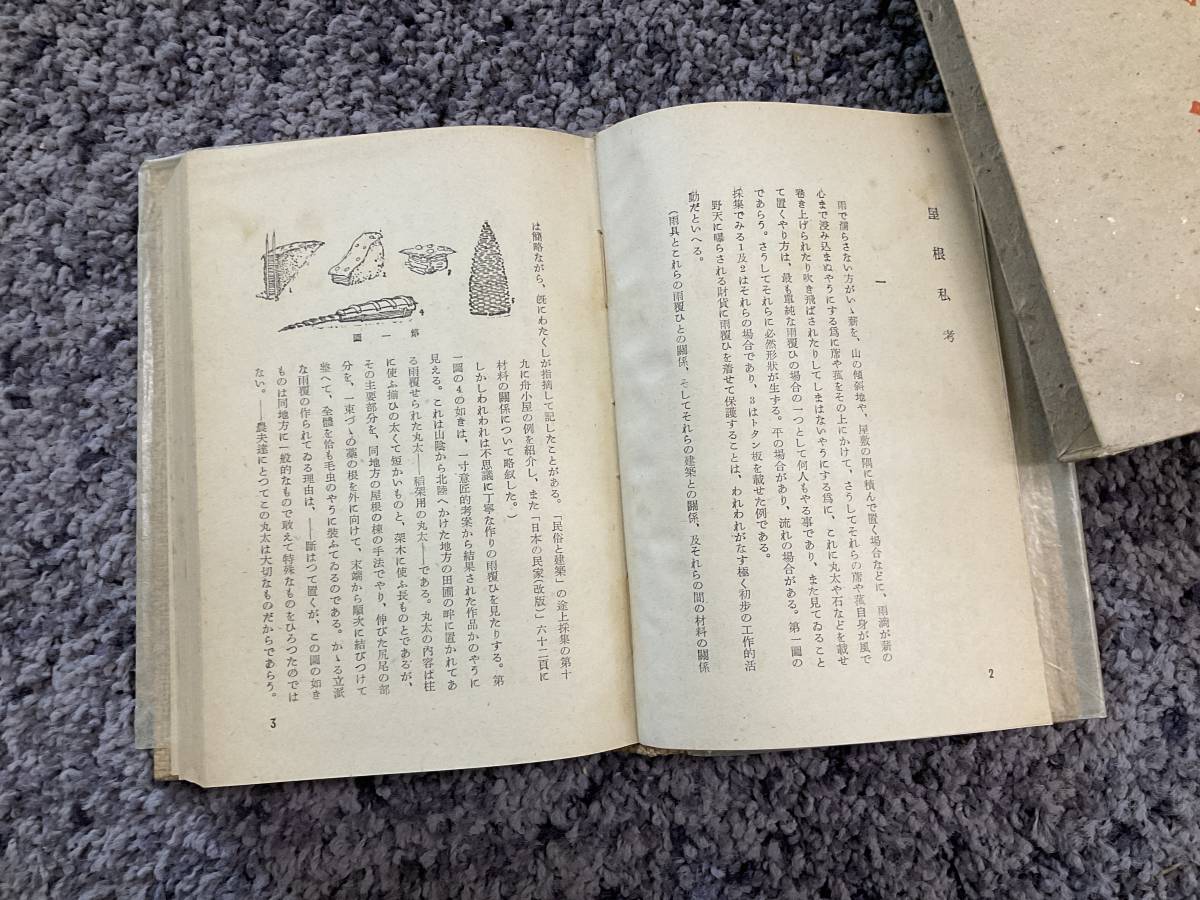 屋根私考
一
雨で濡らさない方がいゝ薪を、山の傾斜地や、屋敷の隅に積んで置く場合などに、雨滴が薪の
心まで浸み込まぬやうにする爲に蓆や菰をその上にかけて、さうしてそれらの蓆や菰自身が風で
巻き上げられたり吹き飛ばされたりしてしまはないやうにする爲に、これに丸太や石などを載せ
て置くやり方は、最も單純な雨覆ひの場合の一つとして何人もやる事であり、また見てゐること
であらう。さうしてそれらに必然形狀が生ずる。平の場合があり、流れの場合がある。第一圖の
採集でみる1及2はそれらの場合であり、3はトタン板を載せた例である。
野天に曝らされる財貨に雨覆ひを着せて保護することは、われわれがなす極く初歩の工作的活
動だといへる。
(雨具とこれらの雨覆ひとの關係、そしてそれらの建築との關係、及それらの間の材料の關係
2
は簡略ながら、旣にわたくしが指摘して記したことがある。「民俗と建築」の途上採集の第十
九に舟小屋の例を紹介し、また「日本の民家(改版)」六十二頁に
材料の關係について略叙した。)
しかしわれわれは不思議に丁寧な作りの雨覆ひを見たりする。第
一圖の4の如きは、一寸意匠的考案から結果された作品かのやうに
見える。これは山陰から北陸へかけた地方の田圃の畔に置かれてあ
る雨覆せられた丸太――稻架用の丸太――である。丸太の内容は柱
に使ふ揃ひの太くて短かいものと、架木に使ふ長ものとであるが、
その主要部分を、同地方の屋根の棟の手法でやり、伸びた尻尾の部
分を、一束づゝの藁の根を外に向けて、末端から順次に結びつけて
整へて、全體を恰も毛虫のやうに裝ふてゐるのである。かゝる立派
な雨覆の作られてゐる理由は、――斷はつて置くが、この圖の如き
ものは同地方に一般的なもので敢えて特殊なものをひろつたのでは
ない。――農夫達にとつてこの丸太は大切なものだからであらう。
第一圖
4
3